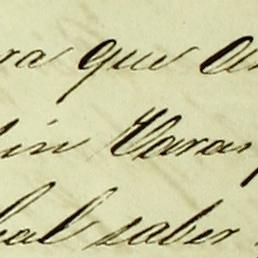 ra que an
lin Varas,
hal saber